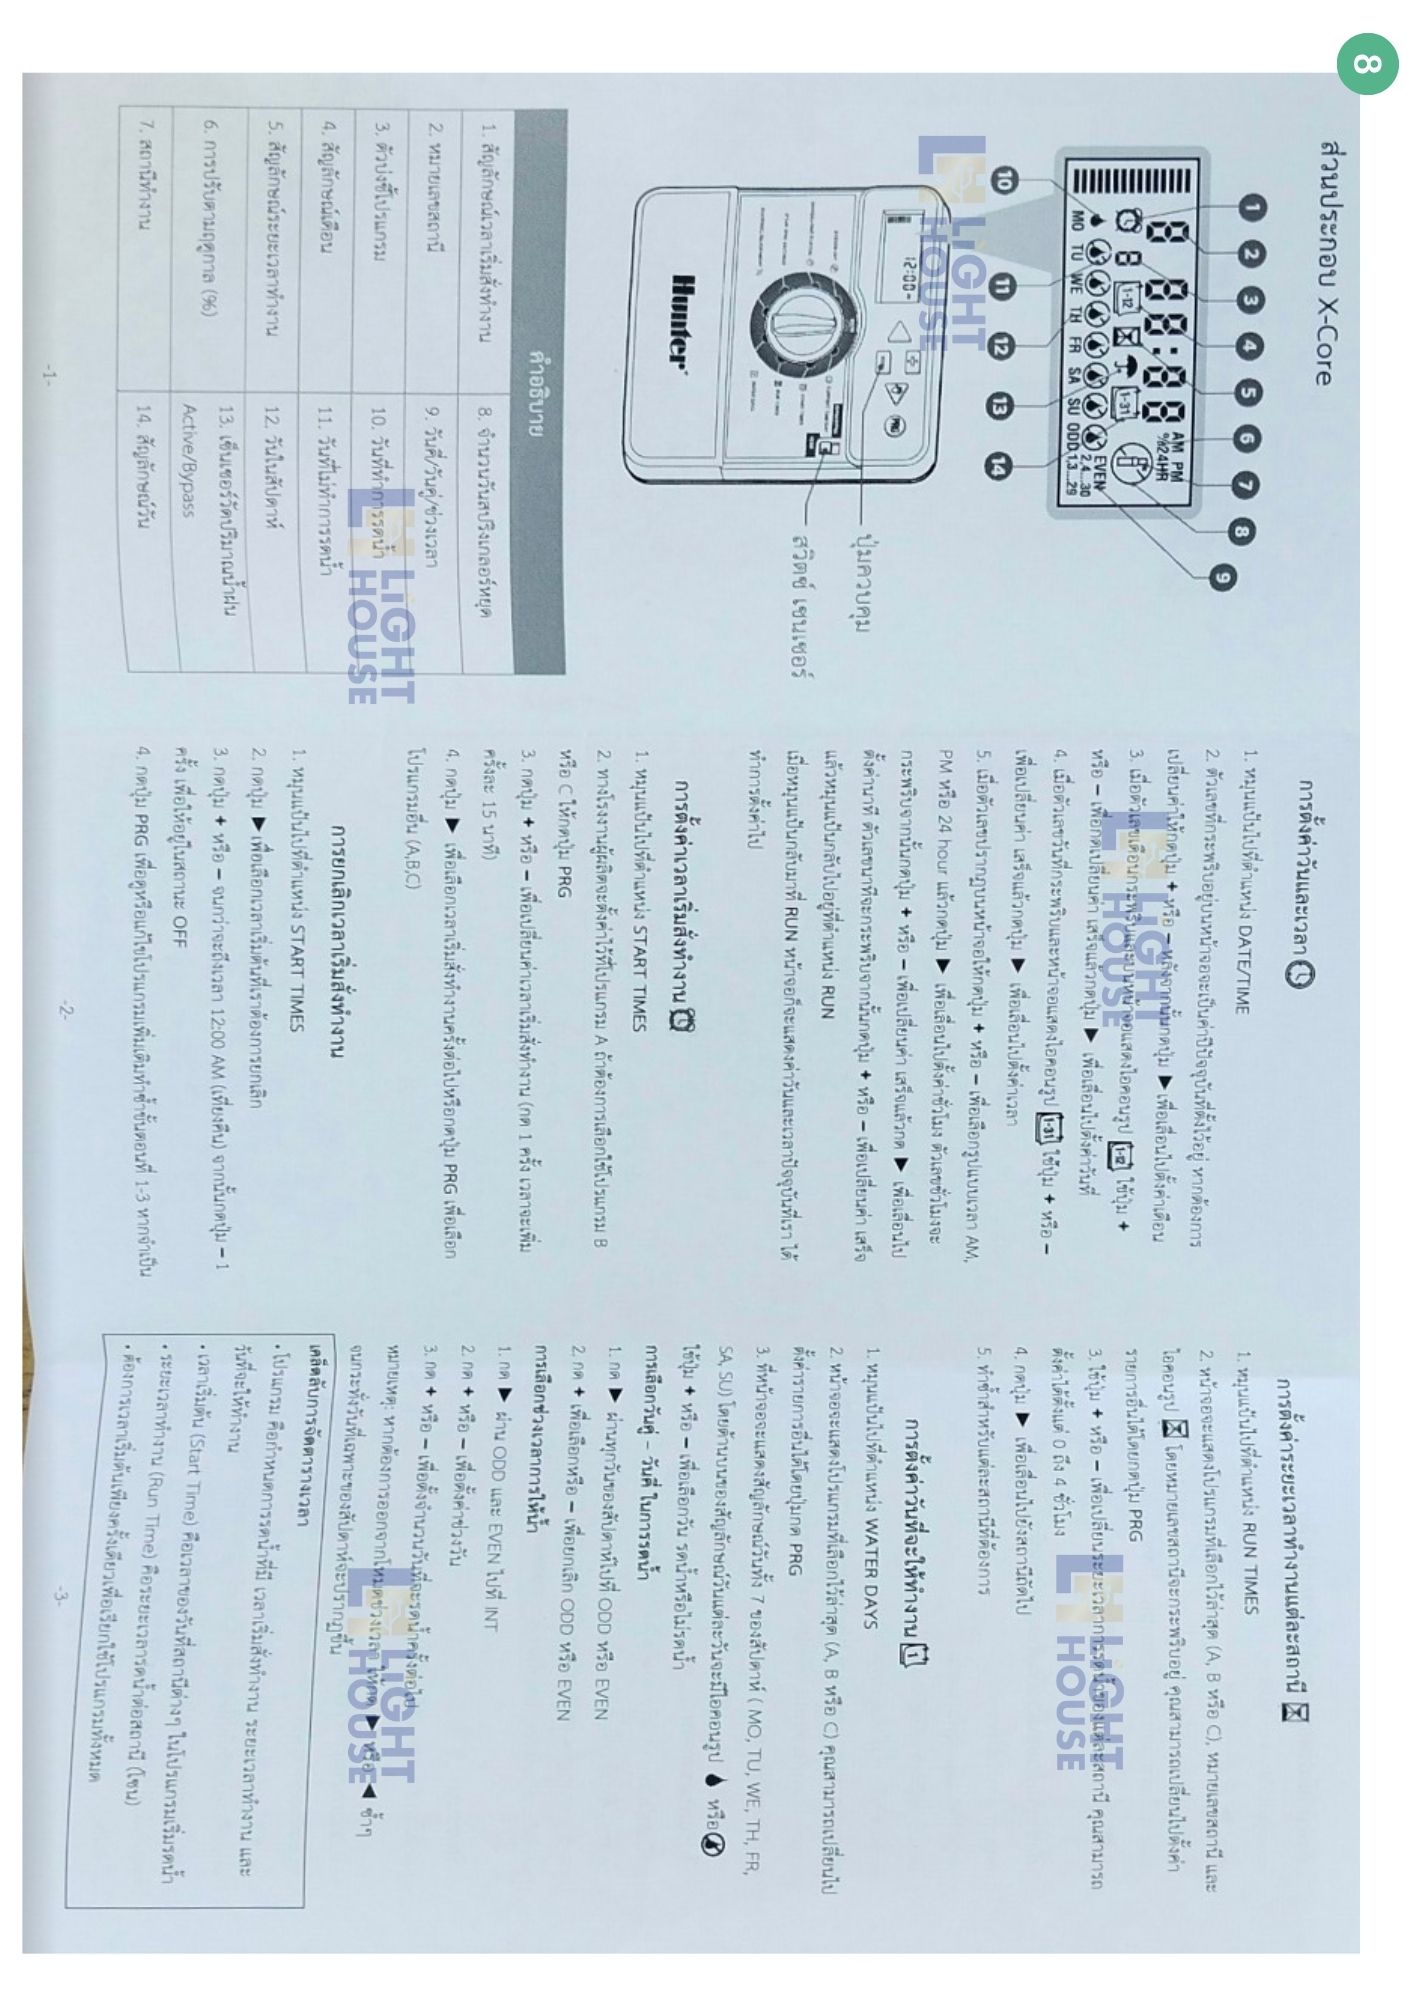 8
ส่วนประกอบ X-Core
1
2
3
4
5
6
7
8
9
8 88:88
AM PM
%24HR
8
1-12
1-31
EVEN
2,4...30
MO TU WE TH FR SA SU ODD 1,3...29
10
11
12
13
14
12:00
PRG
Hunter®
ปุ่มควบคุม
สวิตช์ เซนเซอร์
คำอธิบาย
1. สัญลักษณ์เวลาเริ่มสั่งทำงาน
8. จำนวนวันสปริงเกลอร์หยุด
2. หมายเลขสถานี
9. วันคี่/วันคู่/ช่วงเวลา
3. ตัวบ่งชี้โปรแกรม
10. วันที่ทำการรดน้ำ
4. สัญลักษณ์เดือน
11. วันที่ไม่ทำการรดน้ำ
5. สัญลักษณ์ระยะเวลาทำงาน
12. วันในสัปดาห์
6. การปรับตามฤดูกาล (%)
13. เซ็นเซอร์วัดปริมาณน้ำฝน
Active/Bypass
7. สถานีทำงาน
14. สัญลักษณ์วัน
-1-
การตั้งค่าวันและเวลา
1. หมุนแป้นไปที่ตำแหน่ง DATE/TIME
2. ตัวเลขที่กระพริบอยู่บนหน้าจอจะเป็นค่าปีปัจจุบันที่ตั้งไว้อยู่ หากต้องการ
เปลี่ยนค่าให้กดปุ่ม + หรือ – หลังจากนั้นกดปุ่ม ▶ เพื่อเลื่อนไปตั้งค่าเดือน
3. เมื่อตัวเลขเดือนกระพริบและบนหน้าจอแสดงไอคอนรูป 1-12 ใช้ปุ่ม +
หรือ – เพื่อกดเปลี่ยนค่า เสร็จแล้วกดปุ่ม ▶ เพื่อเลื่อนไปตั้งค่าวันที่
4. เมื่อตัวเลขวันที่กระพริบและหน้าจอแสดงไอคอนรูป 1-31 ใช้ปุ่ม + หรือ –
เพื่อเปลี่ยนค่า เสร็จแล้วกดปุ่ม ▶ เพื่อเลื่อนไปตั้งค่าเวลา
5. เมื่อตัวเลขปรากฏบนหน้าจอให้กดปุ่ม + หรือ – เพื่อเลือกรูปแบบเวลา AM,
PM หรือ 24 hour แล้วกดปุ่ม ▶ เพื่อเลื่อนไปตั้งค่าชั่วโมง ตัวเลขชั่วโมงจะ
กระพริบจากนั้นกดปุ่ม + หรือ – เพื่อเปลี่ยนค่า เสร็จแล้วกด ▶ เพื่อเลื่อนไป
ตั้งค่านาที ตัวเลขนาทีจะกระพริบจากนั้นกดปุ่ม + หรือ – เพื่อเปลี่ยนค่า เสร็จ
แล้วหมุนแป้นกลับไปอยู่ที่ตำแหน่ง RUN
เมื่อหมุนแป้นกลับมาที่ RUN หน้าจอก็จะแสดงค่าวันและเวลาปัจจุบันที่เรา ได้
ทำการตั้งค่าไป
การตั้งค่าเวลาเริ่มสั่งทำงาน
1. หมุนแป้นไปที่ตำแหน่ง START TIMES
2. ทางโรงงานผู้ผลิตจะตั้งค่าไว้ที่โปรแกรม A ถ้าต้องการเลือกใช้โปรแกรม B
หรือ C ให้กดปุ่ม PRG
3. กดปุ่ม + หรือ – เพื่อเปลี่ยนค่าเวลาเริ่มสั่งทำงาน (กด 1 ครั้ง เวลาจะเพิ่ม
ครั้งละ 15 นาที)
4. กดปุ่ม ▶ เพื่อเลือกเวลาเริ่มสั่งทำงานครั้งต่อไปหรือกดปุ่ม PRG เพื่อเลือก
โปรแกรมอื่น (A,B,C)
การยกเลิกเวลาเริ่มสั่งทำงาน
1. หมุนแป้นไปที่ตำแหน่ง START TIMES
2. กดปุ่ม ▶ เพื่อเลือกเวลาเริ่มต้นที่เราต้องการยกเลิก
3. กดปุ่ม + หรือ – จนกว่าจะถึงเวลา 12:00 AM (เที่ยงคืน) จากนั้นกดปุ่ม – 1
ครั้ง เพื่อให้อยู่ในสถานะ OFF
4. กดปุ่ม PRG เพื่อดูหรือแก้ไขโปรแกรมเพิ่มเติมทำซ้ำขั้นตอนที่ 1-3 หากจำเป็น
-2-
การตั้งค่าระยะเวลาทำงานแต่ละสถานี
1. หมุนแป้นไปที่ตำแหน่ง RUN TIMES
2. หน้าจอจะแสดงโปรแกรมที่เลือกไว้ล่าสุด (A, B หรือ C), หมายเลขสถานี และ
ไอคอนรูป โดยหมายเลขสถานีจะกระพริบอยู่ คุณสามารถเปลี่ยนไปตั้งค่า
รายการอื่นได้โดยกดปุ่ม PRG
3. ใช้ปุ่ม + หรือ – เพื่อเปลี่ยนระยะเวลาการรดน้ำของแต่ละสถานี คุณสามารถ
ตั้งค่าได้ตั้งแต่ 0 ถึง 4 ชั่วโมง
4. กดปุ่ม ▶ เพื่อเลื่อนไปยังสถานีถัดไป
5. ทำซ้ำสำหรับแต่ละสถานีที่ต้องการ
การตั้งค่าวันที่จะให้ทำงาน 1
1. หมุนแป้นไปที่ตำแหน่ง WATER DAYS
2. หน้าจอจะแสดงโปรแกรมที่เลือกไว้ล่าสุด (A, B หรือ C) คุณสามารถเปลี่ยนไป
ตั้งค่ารายการอื่นได้โดยปุ่มกด PRG
3. ที่หน้าจอจะแสดงสัญลักษณ์วันทั้ง 7 ของสัปดาห์ ( MO, TU, WE, TH, FR,
SA, SU) โดยด้านบนของสัญลักษณ์วันแต่ละวันจะมีไอคอนรูป หรือ
ใช้ปุ่ม + หรือ – เพื่อเลือกวัน รดน้ำหรือไม่รดน้ำ
การเลือกวันคู่ – วันคี่ ในการรดน้ำ
1. กด ▶ ผ่านทุกวันของสัปดาห์ไปที่ ODD หรือ EVEN
2. กด + เพื่อเลือกหรือ – เพื่อยกเลิก ODD หรือ EVEN
การเลือกช่วงเวลาการให้น้ำ
1. กด ▶ ผ่าน ODD และ EVEN ไปที่ INT
2. กด + หรือ – เพื่อตั้งค่าช่วงวัน
3. กด + หรือ – เพื่อตั้งจำนวนวันที่จะรดน้ำครั้งต่อไป
หมายเหตุ: หากต้องการออกจากโหมดช่วงเวลา ให้กด ▶ หรือ ◀ ซ้ำๆ
จนกระทั่งวันที่เฉพาะของสัปดาห์จะปรากฏขึ้น
เคล็ดลับการจัดตารางเวลา
• โปรแกรม คือกำหนดการรดน้ำที่มี เวลาเริ่มสั่งทำงาน ระยะเวลาทำงาน และ
วันที่จะให้ทำงาน
• เวลาเริ่มต้น (Start Time) คือเวลาของวันที่สถานีต่างๆ ในโปรแกรมเริ่มรดน้ำ
• ระยะเวลาทำงาน (Run Time) คือระยะเวลารดน้ำต่อสถานี (โซน)
• ต้องการเวลาเริ่มต้นเพียงครั้งเดียวเพื่อเรียกใช้โปรแกรมทั้งหมด
-3-
LIGHT
HOUSE
LIGHT
HOUSE
LIGHT
HOUSE
LIGHT
HOUSE
LIGHT
HOUSE